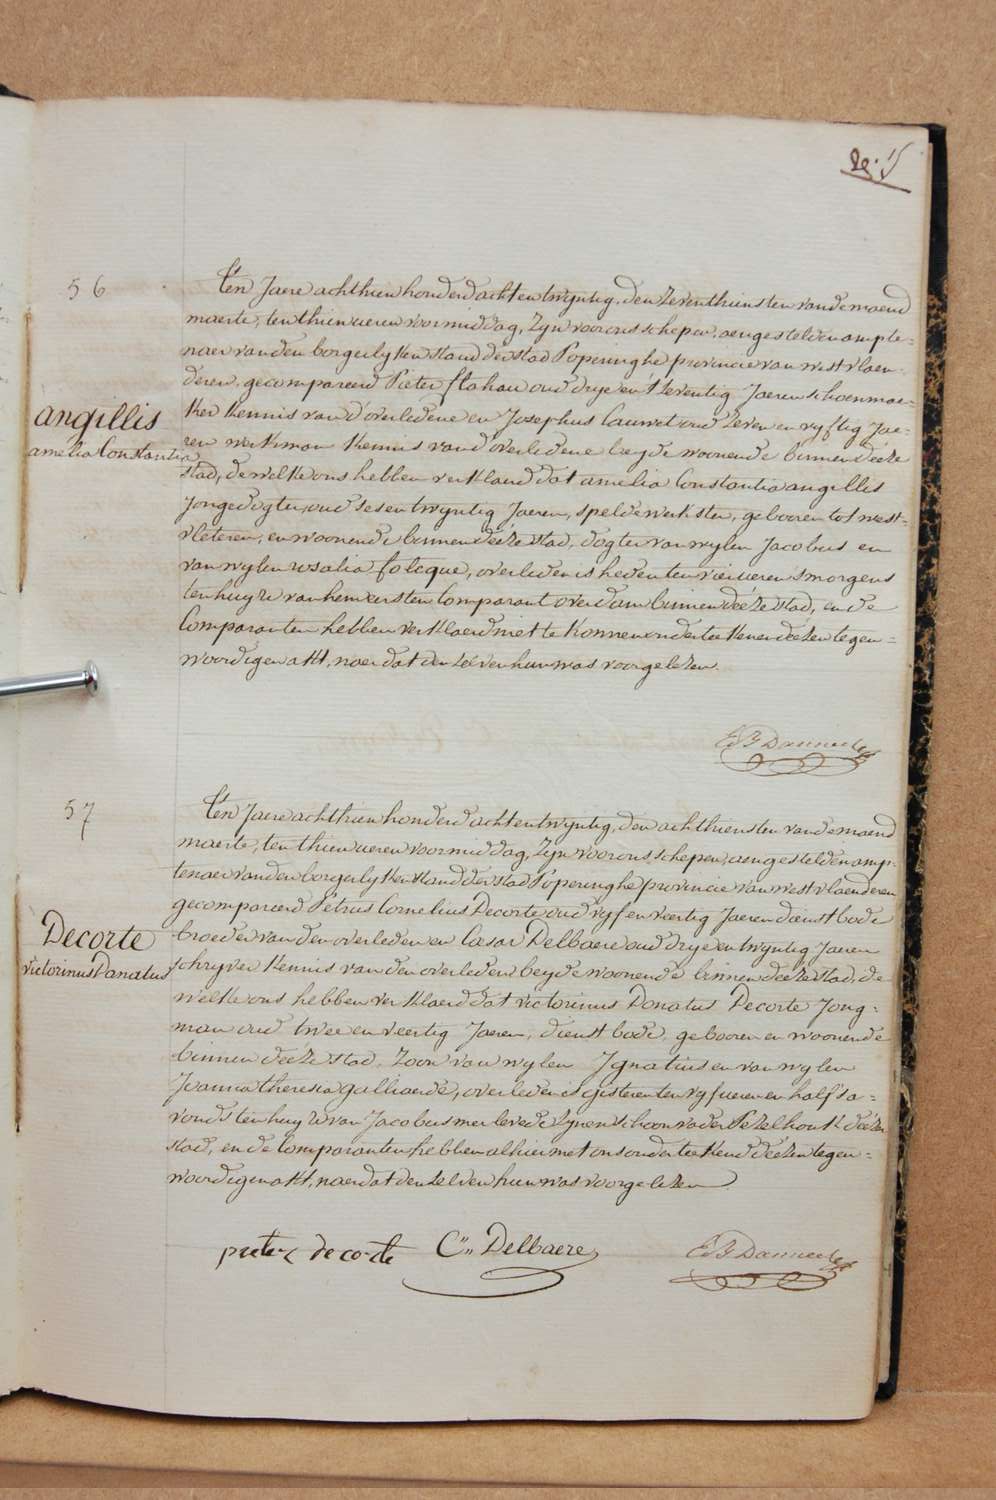 56
Ten Jaere achthien honderd acht en twyntig, den zeventhiensten van de maend
maerte, ten thien ueren voormiddag, zyn voor ons schepen, aengestelden ampte-
naer van den borgerlyken stand der stad Poperinghe provincie van west vlaen-
deren, gecompareerd Pieter flahau oud drye en t'zeventig Jaeren schoenmae-
angillis
ker kennis van d'overledene en Josephus Cauwet oud zeven en vyftig Jae-
amelia Constantia
ren werkman kennis vand'overledene beyde woonende binnen deéze
stad, de welke ons hebben verklaerd dat amelia Constantia angillis
jongedogter, oud ses en twyntig Jaeren, speldewerkster, gebooren tot west-
vleteren, en woonende binnen deéze stad, dogter van wylen Jacobus en
van wylen rosalia folcque, overleden is heden ten vier ueren s'morgens
ten huyze van hem eersten Comparant overdam binnen deéze stad, en de
Comparanten hebben verklaerd niet te konnen onderteekenen deézen tegen-
woordigen akt, naer dat den zelven hun was voorgelezen.
57
Ten Jaere achthien honderd acht en twyntig, den achthiensten van de maend
maerte, ten thien ueren voormiddag, zyn voor ons schepen, aengestelden amp-
tenaer van den borgerlyken stand der stad Poperinghe provincie van west vlaenderen
gecompareerd Petrus Cornelius Decorte oud vyf en veertig Jaeren dienstbode
Decorte
broeder van den overleden en Cæsar Delbaere oud drye en twyntig Jaeren
victorinus Donatus
schryver kennis van den overleden beyde woonende binnen deéze stad, de
welke ons hebben verklaerd dat victorinus Donatus Decorte Jong-
man oud twee en veertig Jaeren, dienstbode, gebooren en woonende
binnen deéze stad, zoon van wylen Jgnatius en van wylen
Joanna theresia galliaerde, overleden is gisteren ten vyf ueren en half s'a-
vonds ten huyze van Jacobus merlevede zynen schoonvader Pézelhouk deéze
stad, en de Comparanten hebben alhier met ons onderteekend deézen tegen-
woordigen akt, naer dat den zelven hun was voorgelezen.
pieter de corte Cn. Delbaere